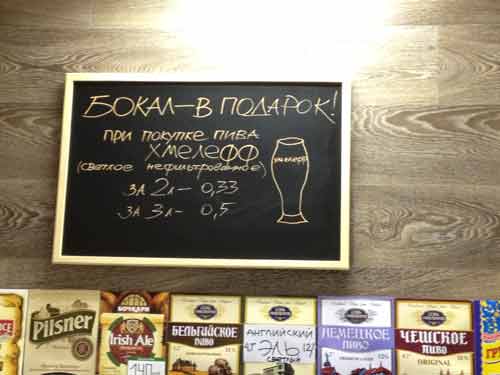 БОКАЛ — В ПОДАРОК!
ПРИ ПОКУПКЕ ПИВА
ХМЕЛЕФФ
(СВЕТЛОЕ НЕФИЛЬТРОВАННОЕ)
ЗА 2Л — 0,33
ЗА 3Л — 0,5
ХМЕЛЕФФ
Pilsner
БОЧКАРИ
Irish Ale
140
БЕЛЬГИЙСКОЕ
ПИВО
АНГЛИЙСКИЙ
ЭЛЬ
СВЕТЛЫЙ
НЕМЕЦКОЕ
ПИВО
ЧЕШСКОЕ
ПИВО
ORIGINAL